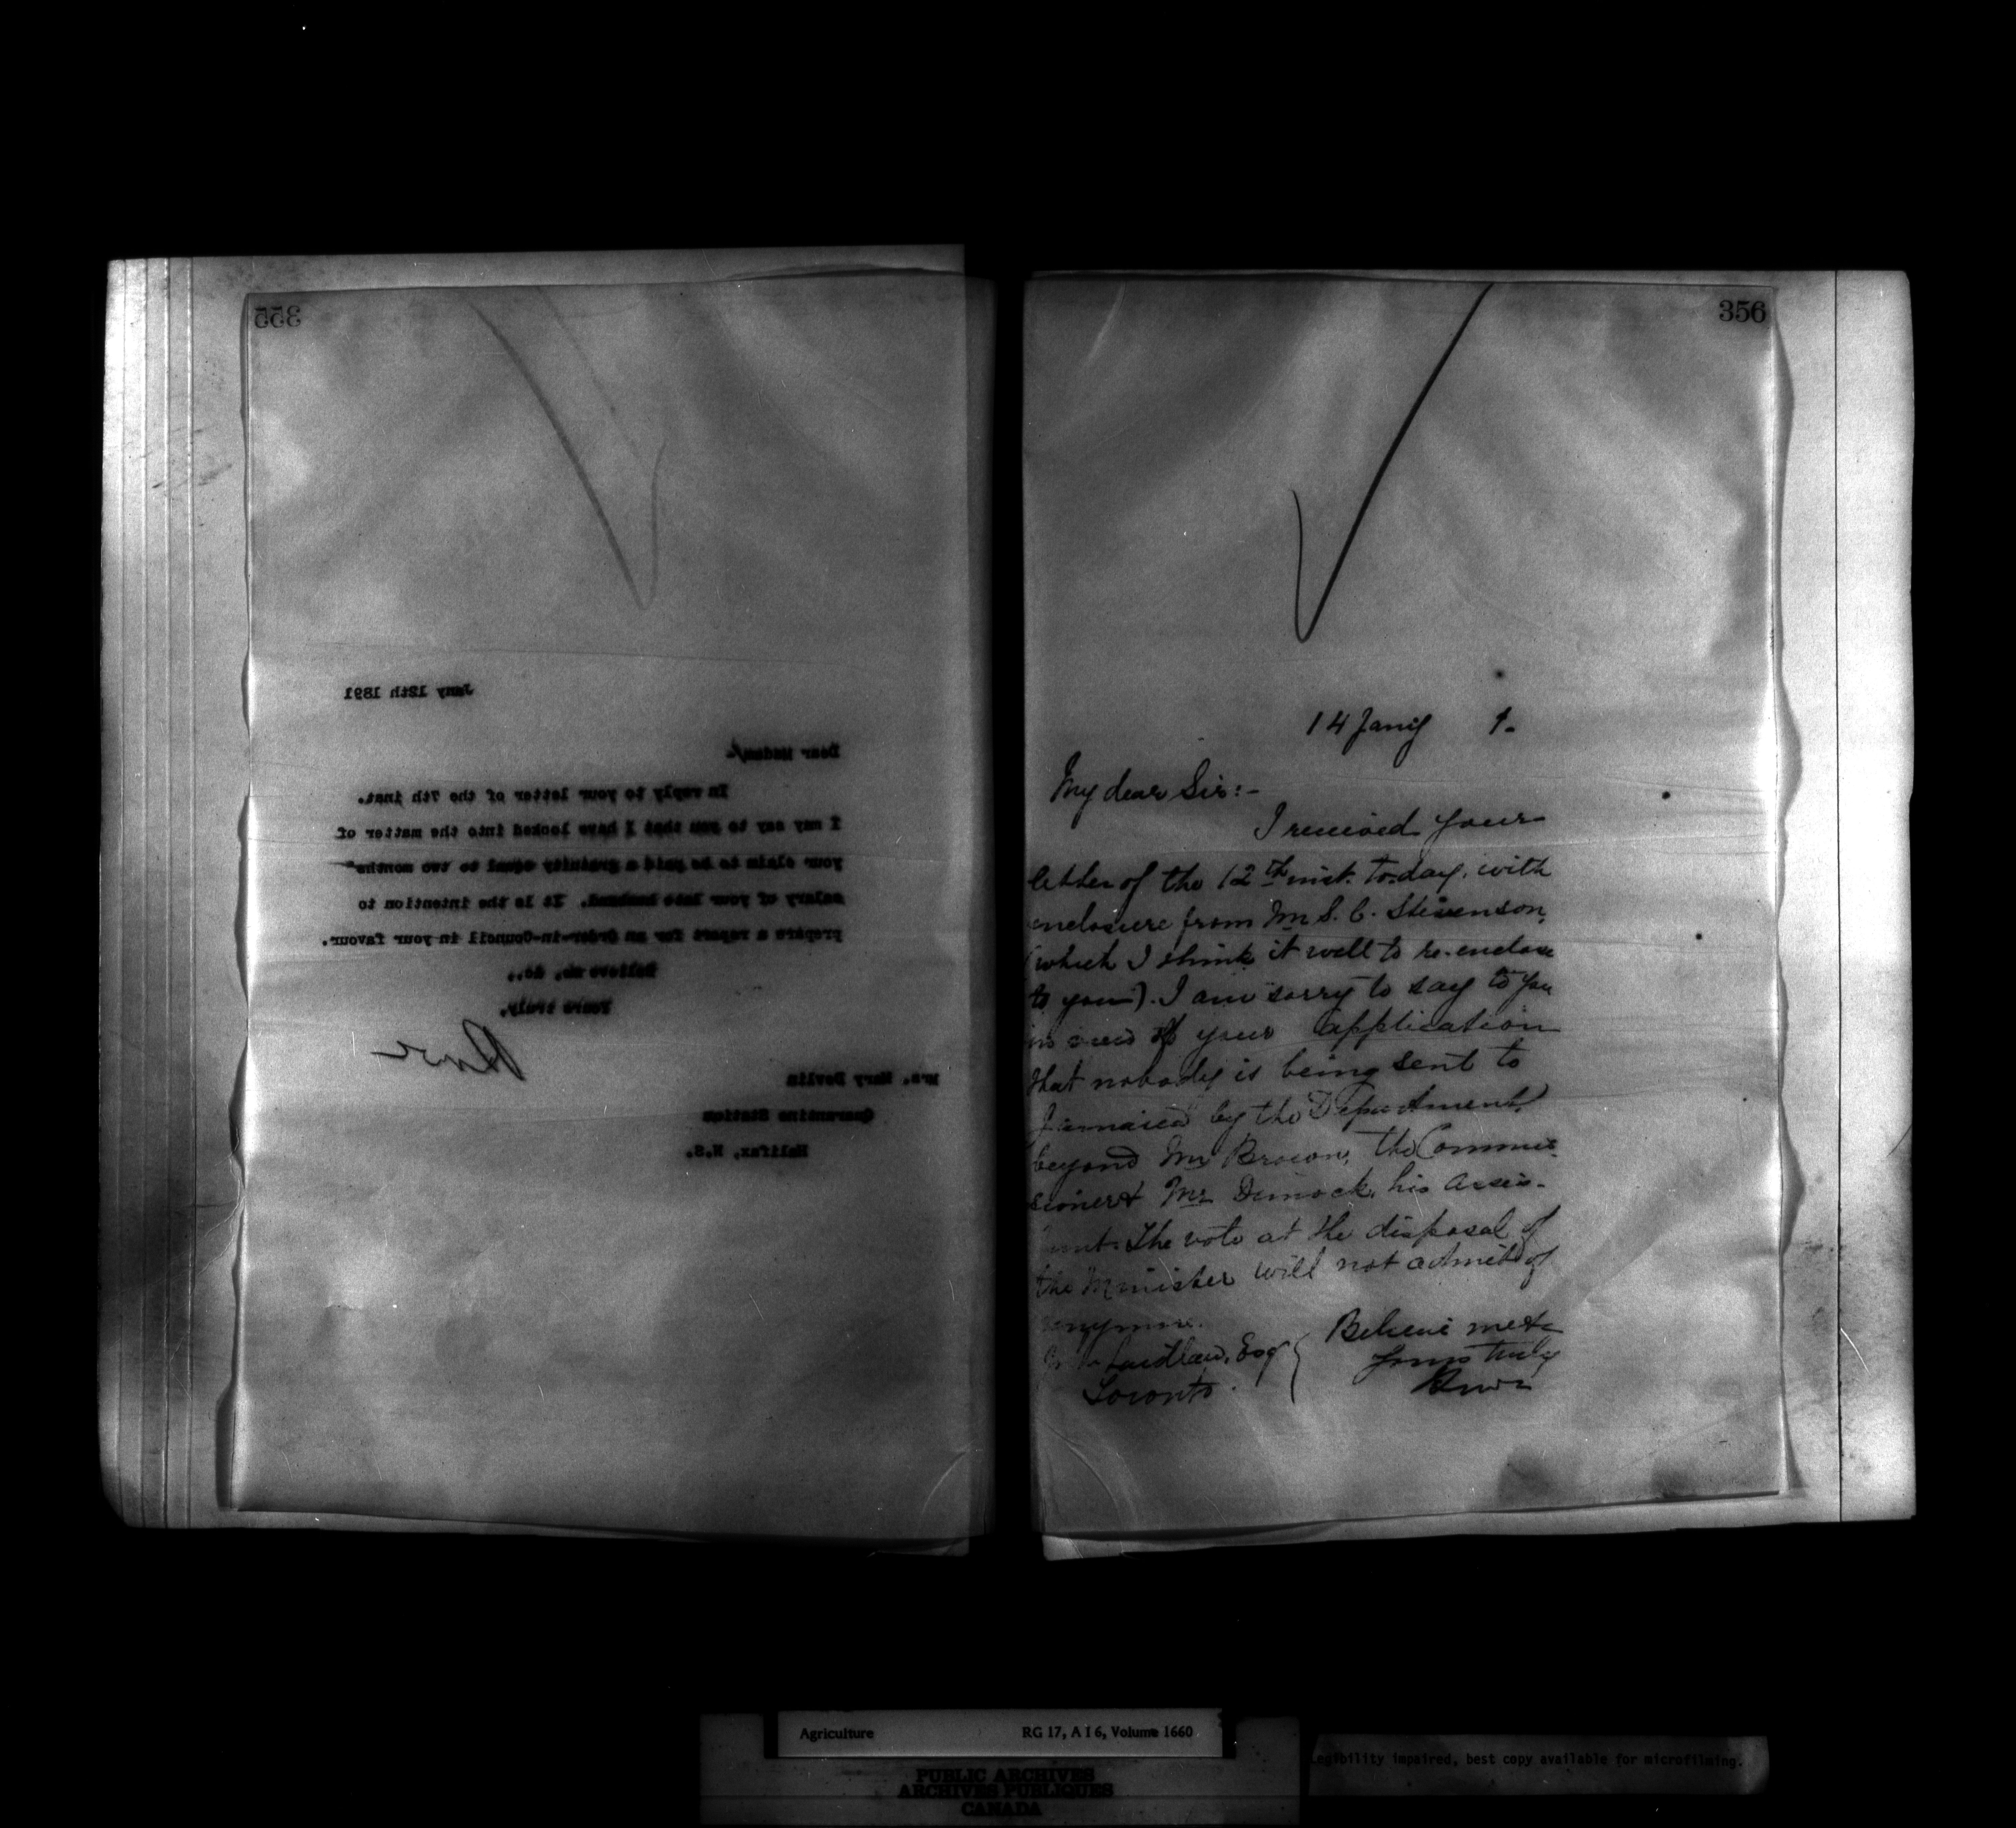 355
Jany 12th 1891
Dear Madam/-
In reply to your letter of the 7th inst.
I may say to you that I have looked into the matter of
your claim to be paid a gratuity equal to two months'
salary of your late husband. It is the intention to
prepare a report for an Order-in-Council in your favour.
Believe me, &c.,
Yours truly,
Mrs. Mary Devlin
Quarantine Station
Halifax, N.S.
356
14 Jany 1.
My dear Sir:-
I received your
letter of the 12th inst. to-day, with
enclosure from Mr S. C. Stevenson,
(which I think it well to re-enclose
to you). I am sorry to say to you
in view of your application
that nobody is being sent to
Jamaica by the Department
beyond Mr Brown, the Commis-
sioner & Mr Dimock, his assis-
tant. The vote at the disposal of
the Minister will not admit of
anymore.
Believe me &c
Yours truly
Laidlaw, Esq
Toronto.
Agriculture RG 17, A I 6, Volume 1660
PUBLIC ARCHIVES
ARCHIVES PUBLIQUES
CANADA
Legibility impaired, best copy available for microfilming.